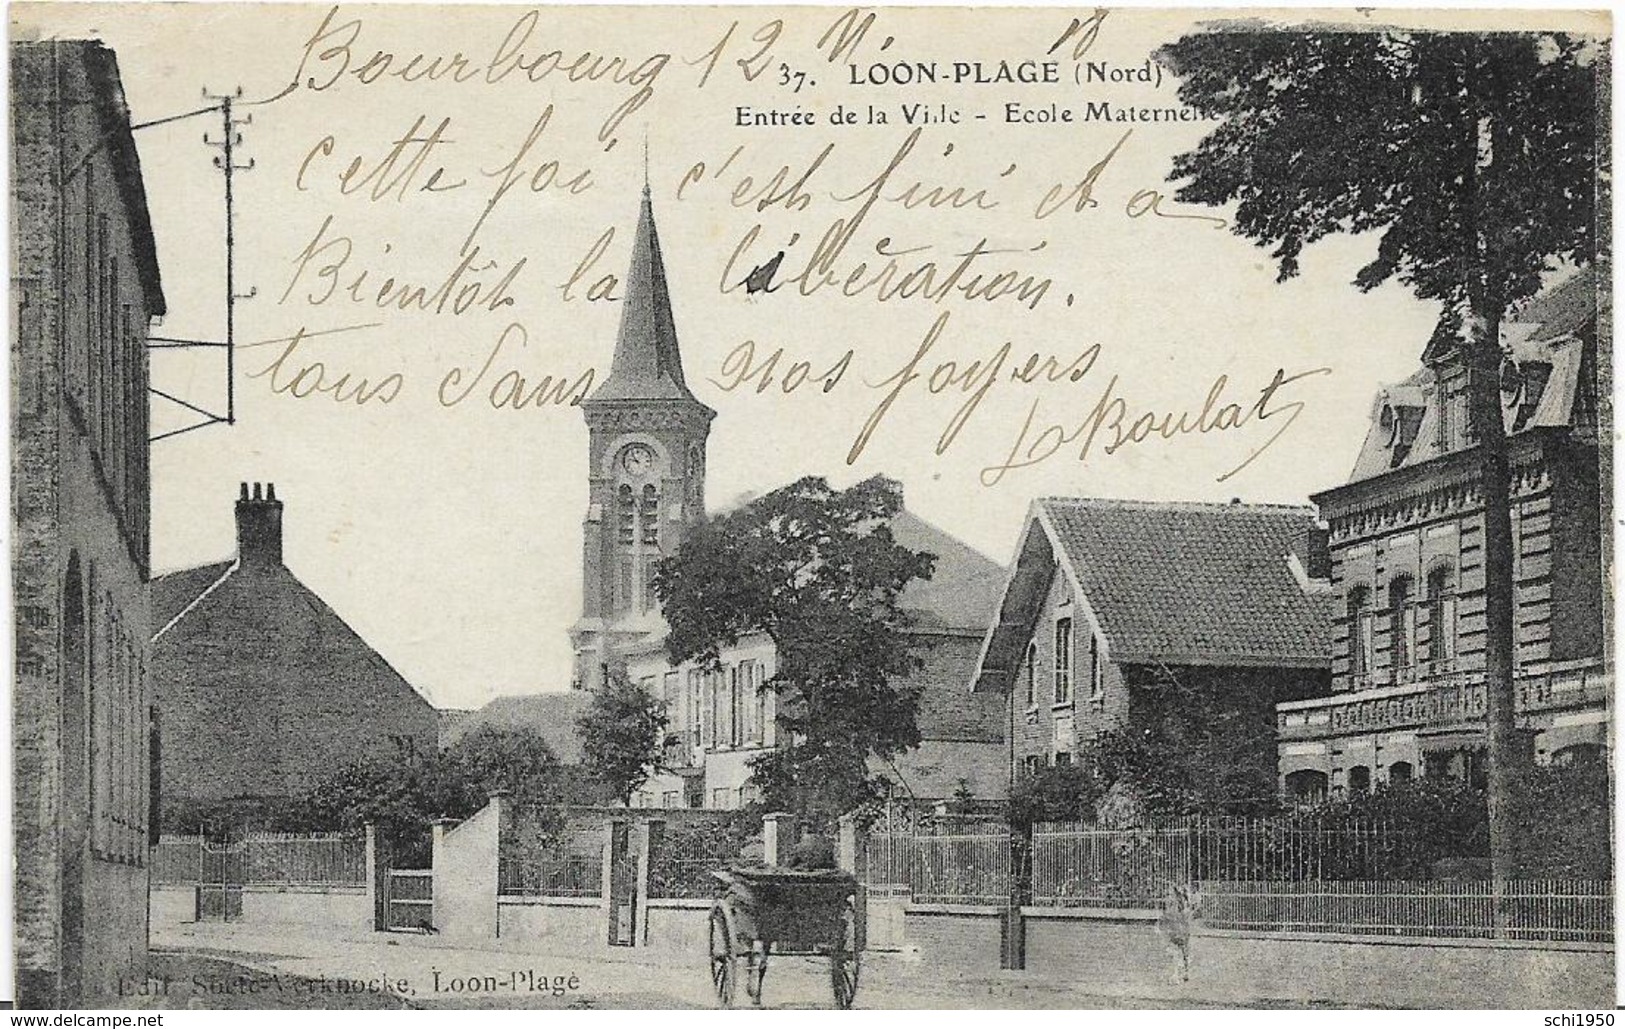 Bourbourg 12 XI 18
37. LOON-PLAGE (Nord)
Entrée de la Ville - Ecole Maternelle
cette foi c'est fini et a
Bientôt la libération.
tous dans nos foyers
Boulat
Edit. Verknocke, Loon-Plage
schi1950